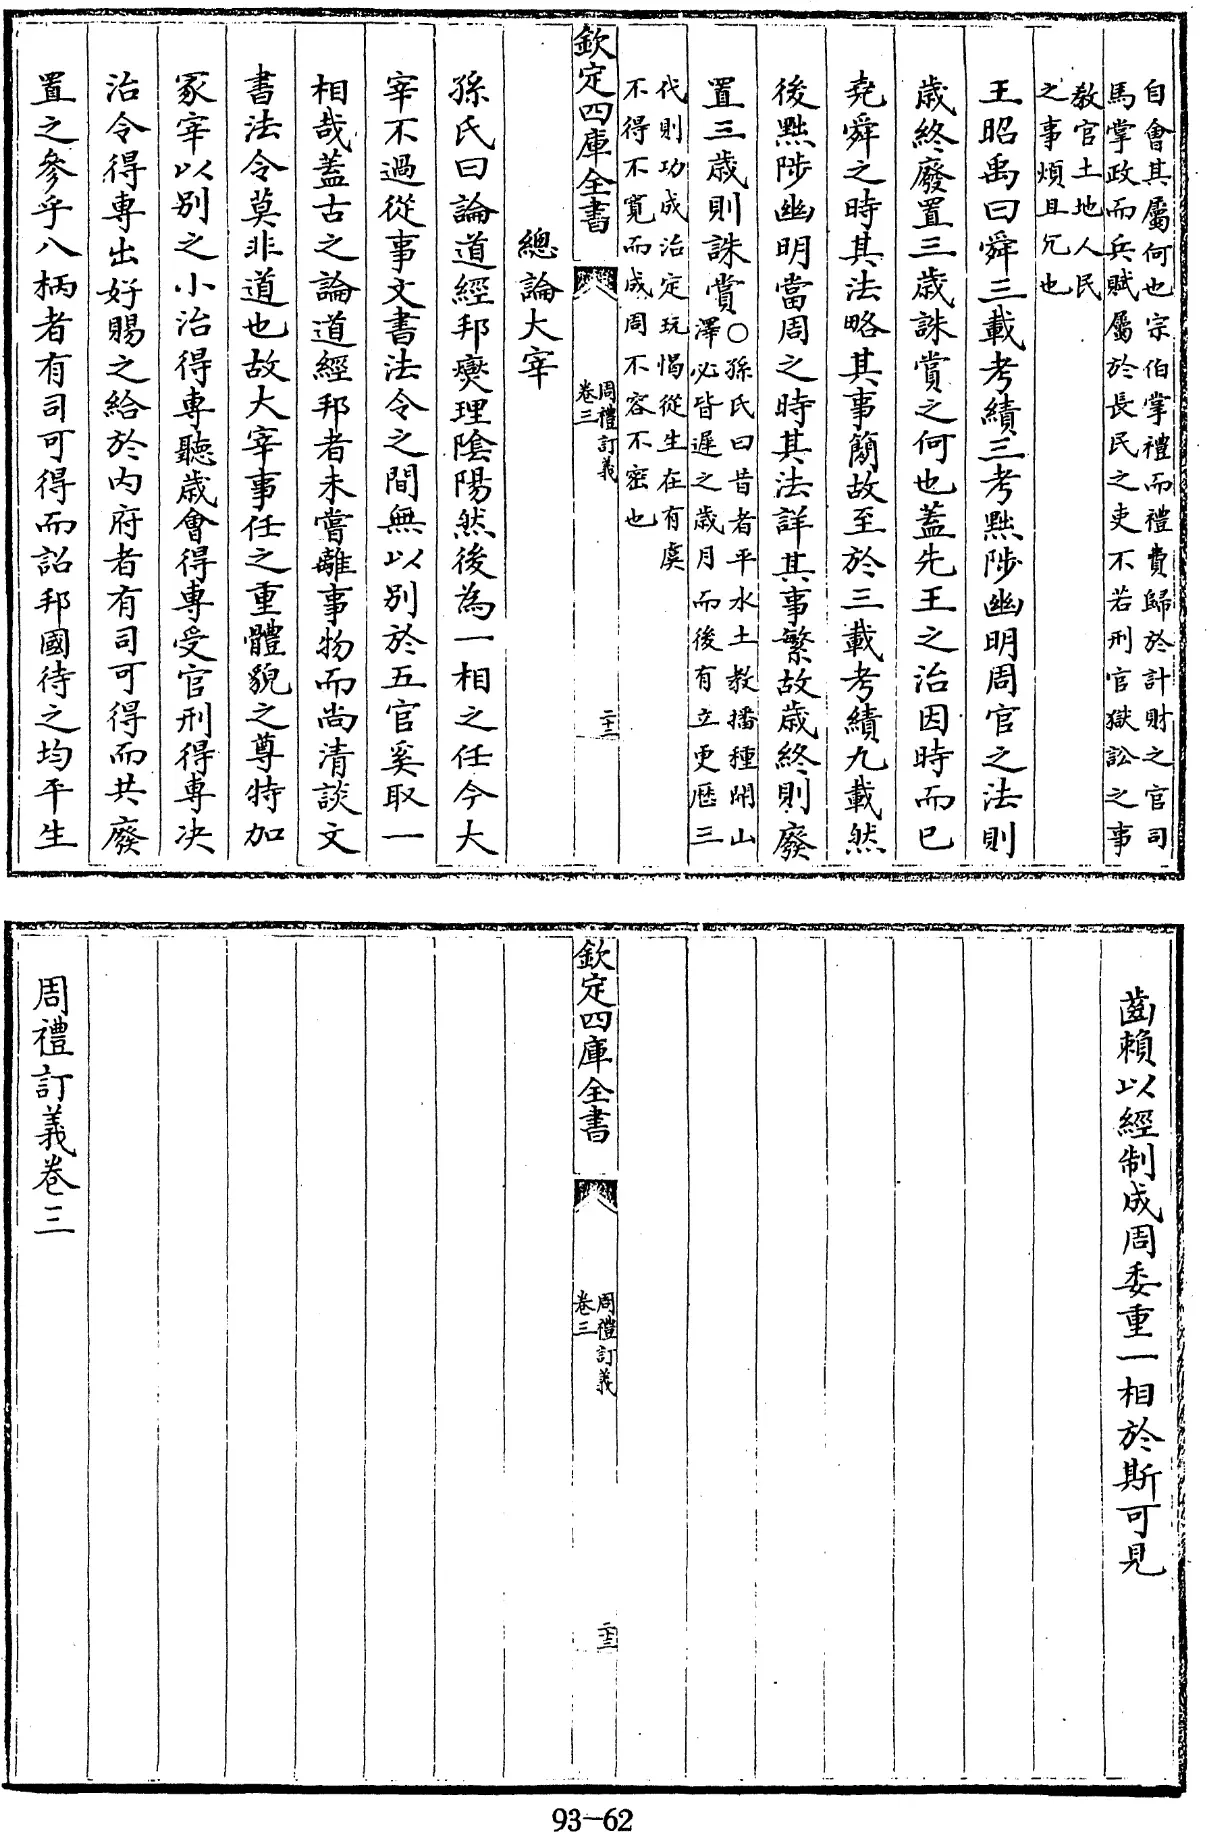 自會其屬何也宗伯掌禮而禮費歸於計財之官司
馬掌政而兵賦屬於長民之吏不若刑官獄訟之事
敎官土地人民
之事煩且冗也
王昭禹曰舜三載考績三考黜陟幽明周官之法則
歳終廢置三歳誅賞之何也蓋先王之治因時而已
堯舜之時其法略其事簡故至於三載考績九載然
後黜陟幽明當周之時其法詳其事繁故歳終則廢
置三歳則誅賞○孫氏曰昔者平水土教播種開山
澤必皆遲之歳月而後有立更歴三
代則功成治定玩愒從生在有虞
不得不寛而成周不容不密也
欽定四庫全書
周禮訂義
卷三
二十二
總論大宰
孫氏曰論道經邦爕理隂陽然後為一相之任今大
宰不過從事文書法令之間無以别於五官奚取一
相哉蓋古之論道經邦者未嘗離事物而尚清談文
書法令莫非道也故大宰事任之重體貌之尊特加
冢宰以别之小治得専聽歳會得専受官刑得専决
治令得専出好賜之給於内府者有司可得而共廢
置之參乎八柄者有司可得而詔邦國待之均平生
齒賴以經制成周委重一相於斯可見
欽定四庫全書
周禮訂義
卷三
二十三
周禮訂義卷三
93-62